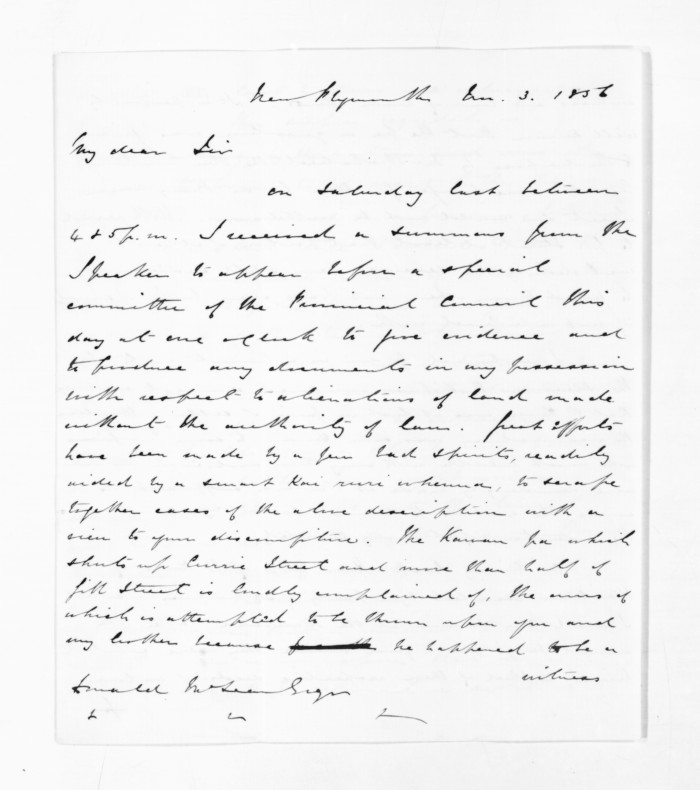 New Plymouth 3. 1856
My dear Sir
on Saturday last between
4 & 5 p.m. I received a summons from the
Speaker to appear before a special
committee of the Provincial Council this
day at one o'Clock to give evidence and
to produce any documents in my possession
with respect to alienations of land made
without the authority of law. Great efforts
have been made by a few bad spirits, readily
aided by a smart Kai ruri whenua, to scrape
together cases of the above description with a
view to your discomfiture. The Kawau pa which
shuts up Currie Street and more than half of
Gill Street is loudly complained of, the onus of
which is attempted to be thrown upon you and
my brother because he happened to be a
witness
Donald McLean Esqr